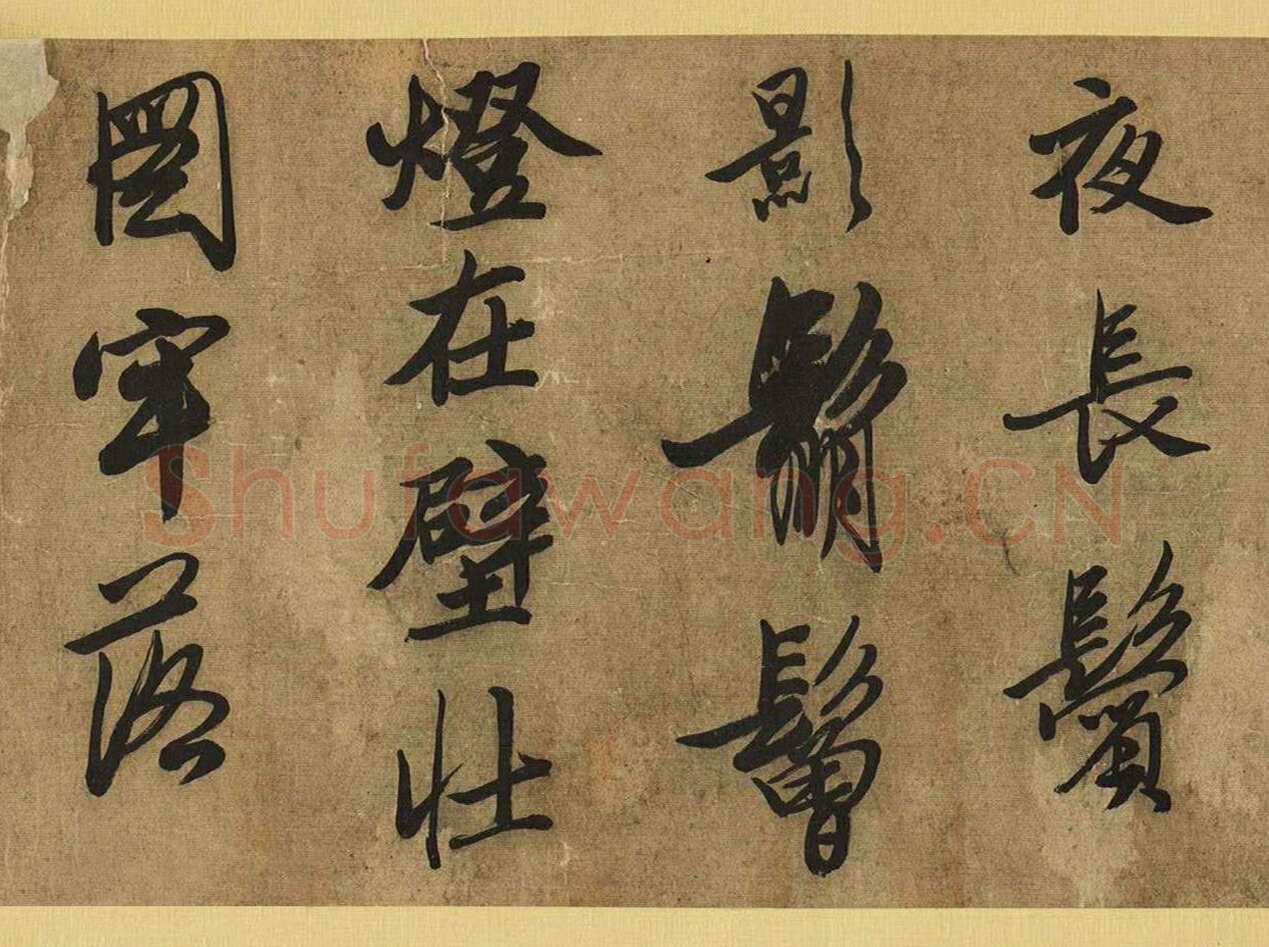 夜長鬢
影鬅鬙
燈在壁壯
圖牢落
Shufawang.CN